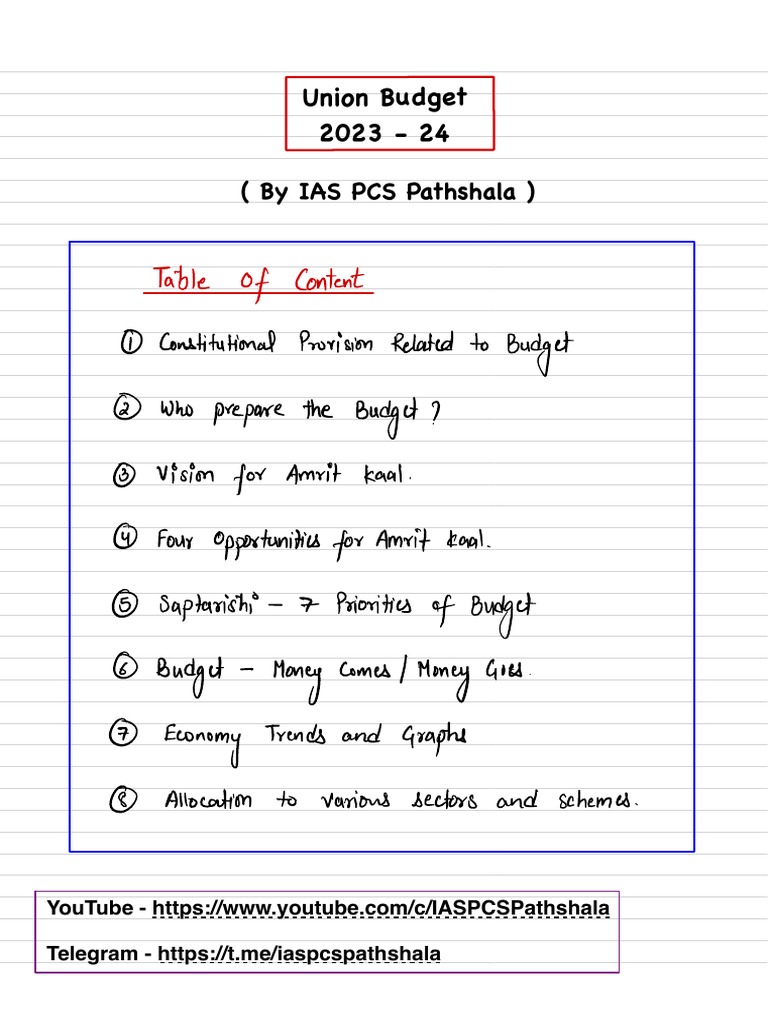 Union Budget
2023 - 24
( By IAS PCS Pathshala )
Table of Content
① Constitutional Provision Related to Budget
② Who prepare the Budget ?
③ Vision for Amrit Kaal.
④ Four Opportunities for Amrit Kaal.
⑤ Saptarishi - 7 Priorities of Budget
⑥ Budget - Money Comes / Money Goes.
⑦ Economy Trends and Graphs
⑧ Allocation to various sectors and schemes.
YouTube - https://www.youtube.com/c/IASPCSPathshala
Telegram - https://t.me/iaspcspathshala